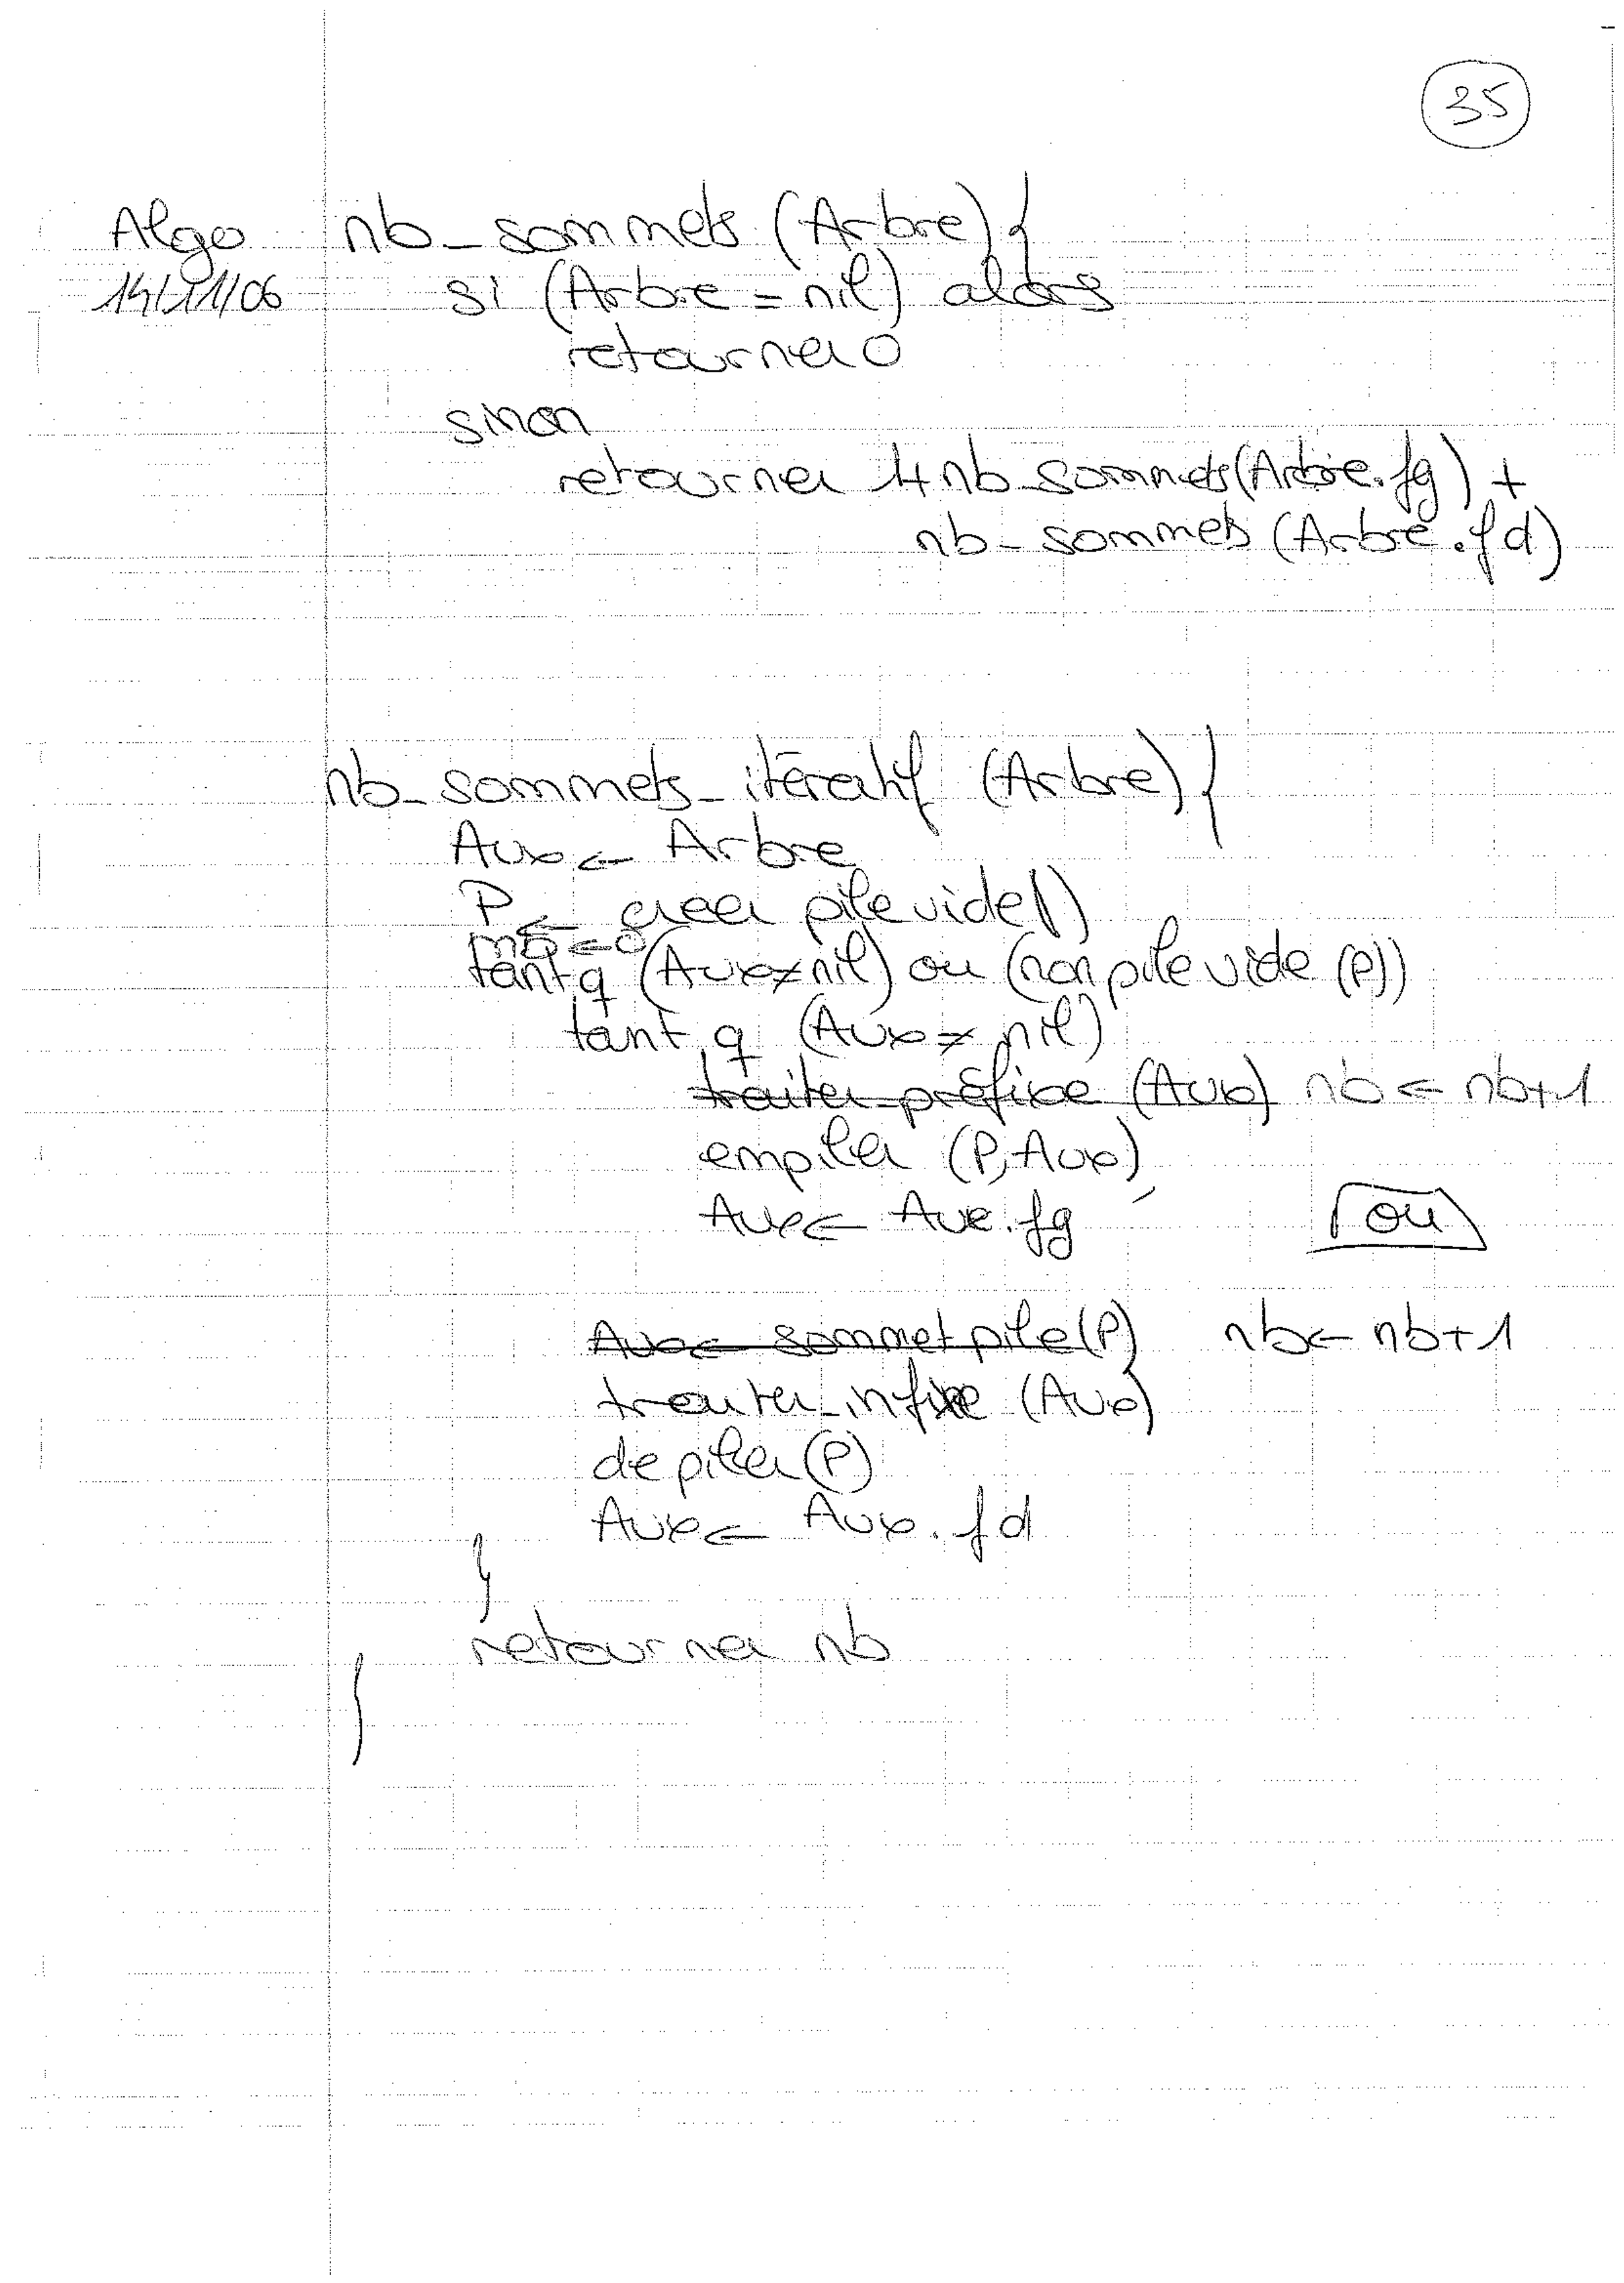 35
Algo nb_sommets (Arbre) {
14/11/06 si (Arbre = nil) alors
retourner 0
sinon
retourner 1+nb_sommets(Arbre.fg) +
nb_sommets (Arbre.fd)
nb_sommets_itératif (Arbre) {
Aux ← Arbre
P ← creer pilevide()
nb ← 0
tant q (Aux ≠ nil) ou (non pile vide (P))
tant q (Aux ≠ nil)
traiter_préfixe (Aux) nb ← nb+1
empiler (P, Aux)
Aux ← Aux.fg
ou
Aux ← sommet pile(P) nb ← nb+1
traiter_infixe (Aux)
depiler (P)
Aux ← Aux.fd
}
retourner nb
}